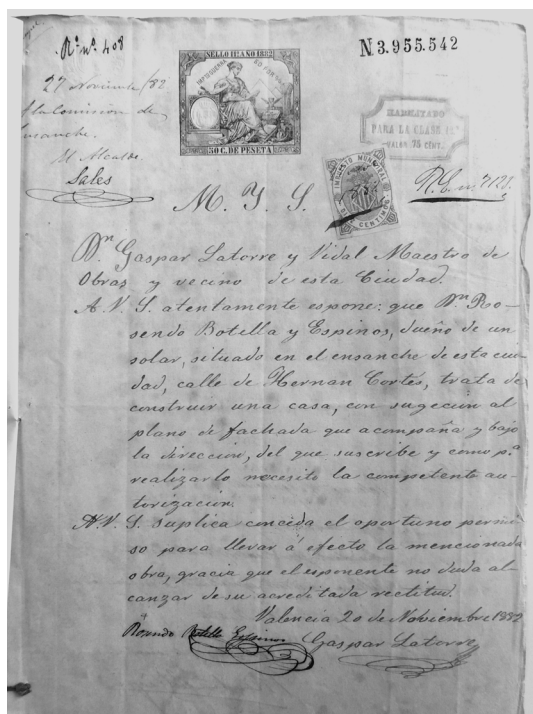 Rº nº. 408
N 3.955.542
SELLO 11º AÑO 1882
50 C. DE PESETA
27 Noviembre/82
A la Comision de
Ensanche.
El Alcalde
Sales
HABILITADO
PARA LA CLASE 11ª
VALOR 75 CÉNT.
IMPUESTO MUNICIPAL
CENTIMOS
R. E. n. 7128.
M. Y. S.
Dn. Gaspar Latorre y Vidal Maestro de
Obras y vecino de esta Ciudad.
A V. S. atentamente espone: que Dn. Ro-
sendo Botella y Espinos, dueño de un
solar, situado en el ensanche de esta ciu-
dad, calle de Hernan Cortés, trata de
construir una casa, con sugecion al
plano de fachada que acompaña y bajo
la direccion, del que suscribe y como p.ª
realizarlo necesita la competente au-
torizacion.
A V. S. suplica conceda el oportuno permi-
so para llevar á efecto la mencionada
obra, gracia que el esponente no duda al-
canzar de su acreditada rectitud.
Valencia 20 de Noviembre 1882
Rosendo Botella Espinos
Gaspar Latorre